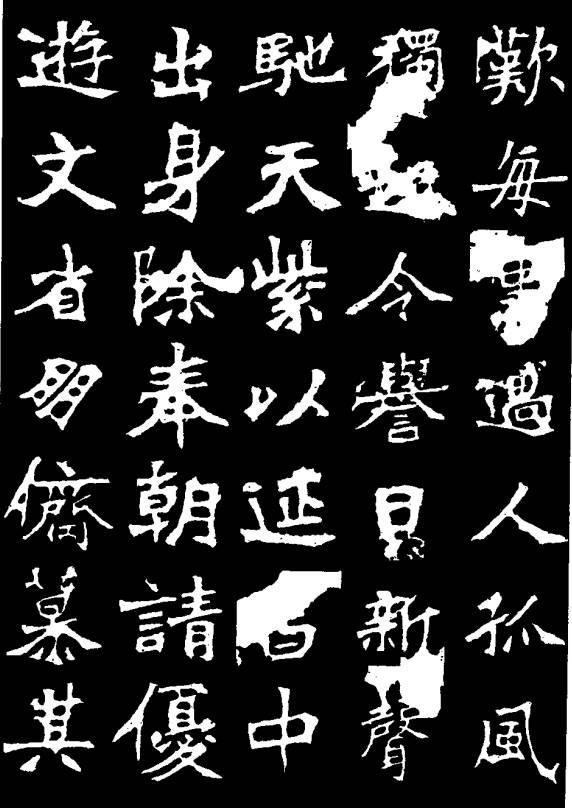 歎每事過人孤風
獨令譽日新聲
馳天紫以延中
出身除奉朝請優
遊文省朋儕慕其